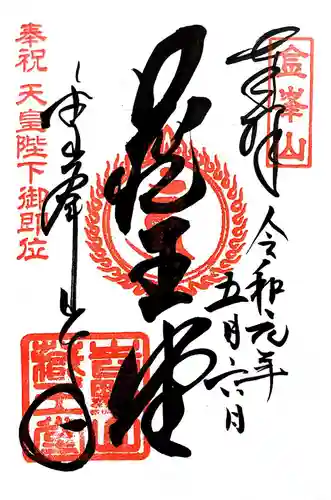 金峯山
奉拝
令和元年
五月六日
蔵王堂
金峯山寺
奉祝 天皇陛下御即位
吉野山
蔵王堂